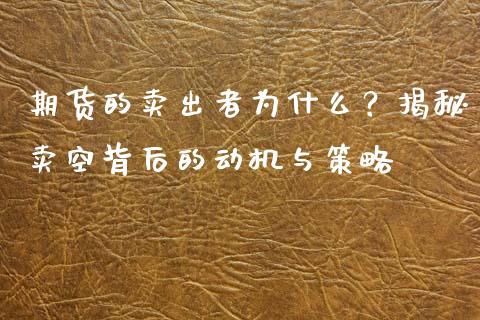 期货的卖出者为什么？揭秘
卖空背后的动机与策略